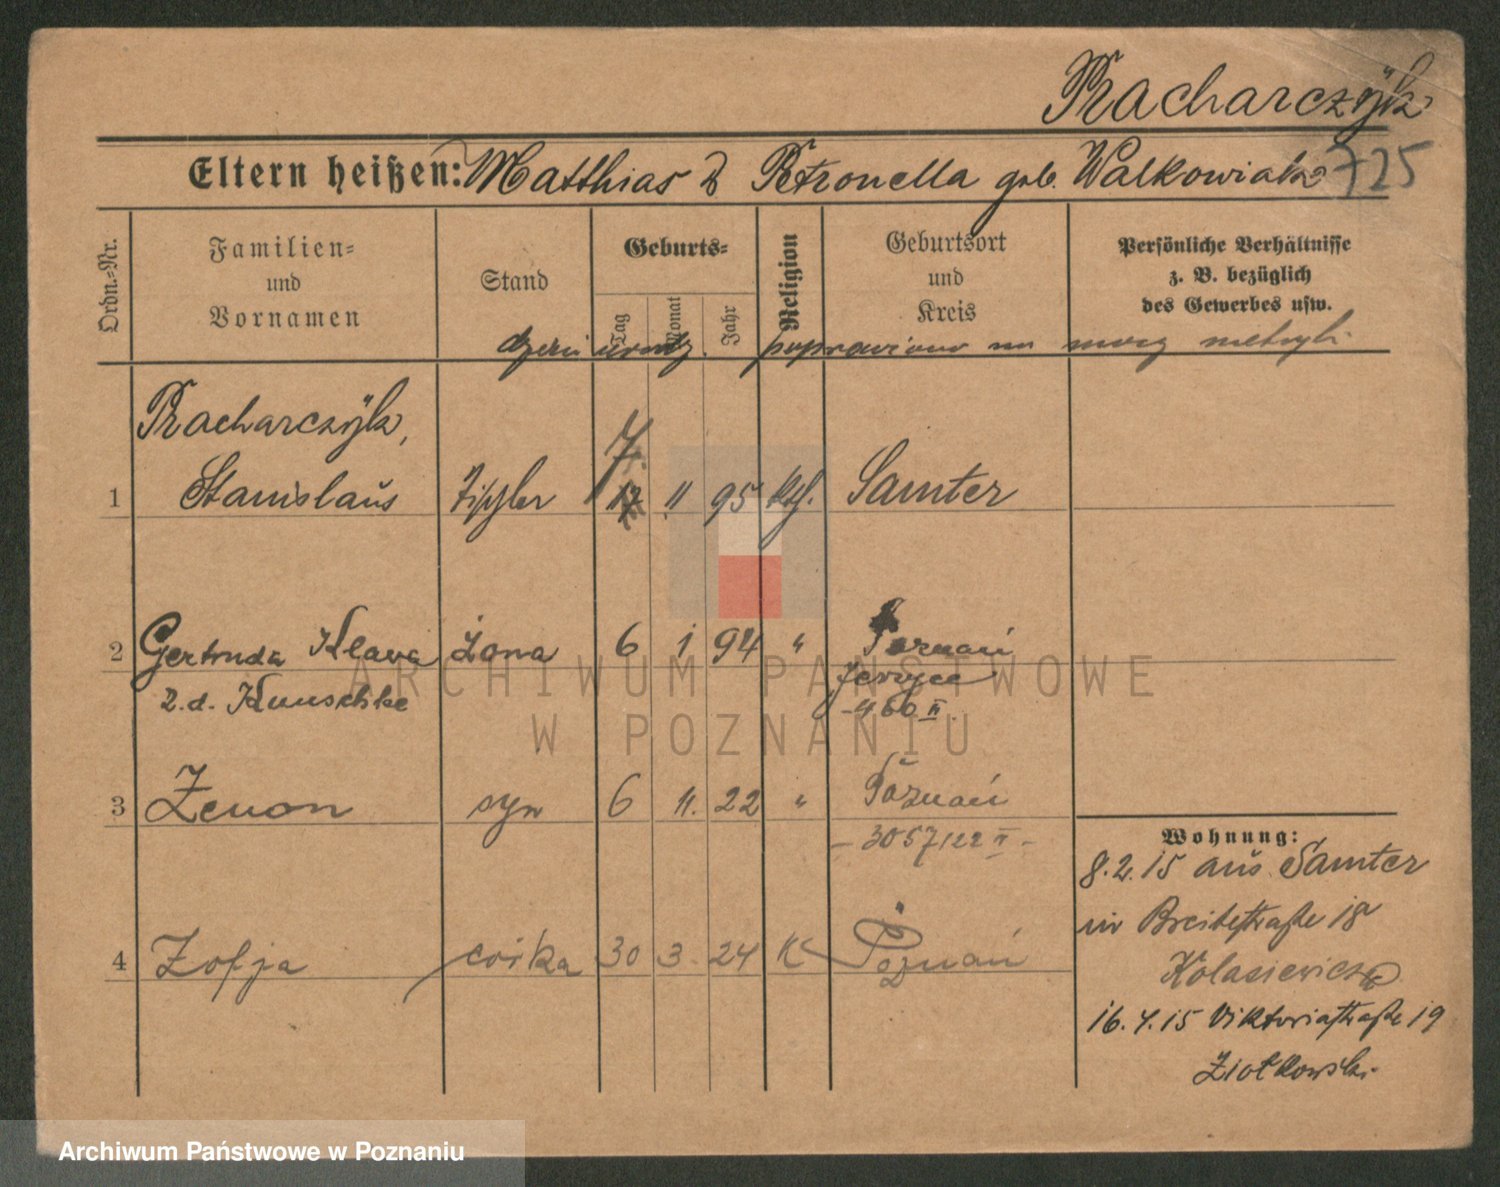 Pracharczÿk
Eltern heißen: Matthias & Petronella geb. Walkowiak 725
Ordn.=Nr.
Familien=
und
Vornamen
Stand
Geburts=
Tag
Monat
Jahr
Religion
Geburtsort
und
Kreis
Persönliche Verhältnisse
z. B. bezüglich
des Gewerbes usw.
dzień urodz. poprawiono na mocy metryki
Pracharczÿk,
1 Stanislaus Tischler 7. 17 11 95 kth. Samter
2 Gertruda Klara żona 6 1 94 " Poznań
z.d. Kuuschke Jerzyce
460 II.
3 Zenon syn 6 11. 22 " Poznań
- 3057/22 II -
4 Zofja córka 30 3. 24 K Poznań
Wohnung:
8.2.15 aus Samter
in Breitestraße 18
Kolasiewicz
16.4.15 Viktoriastraße 19
Ziołkowski.
ARCHIWUM PAŃSTWOWE
W POZNANIU
Archiwum Państwowe w Poznaniu